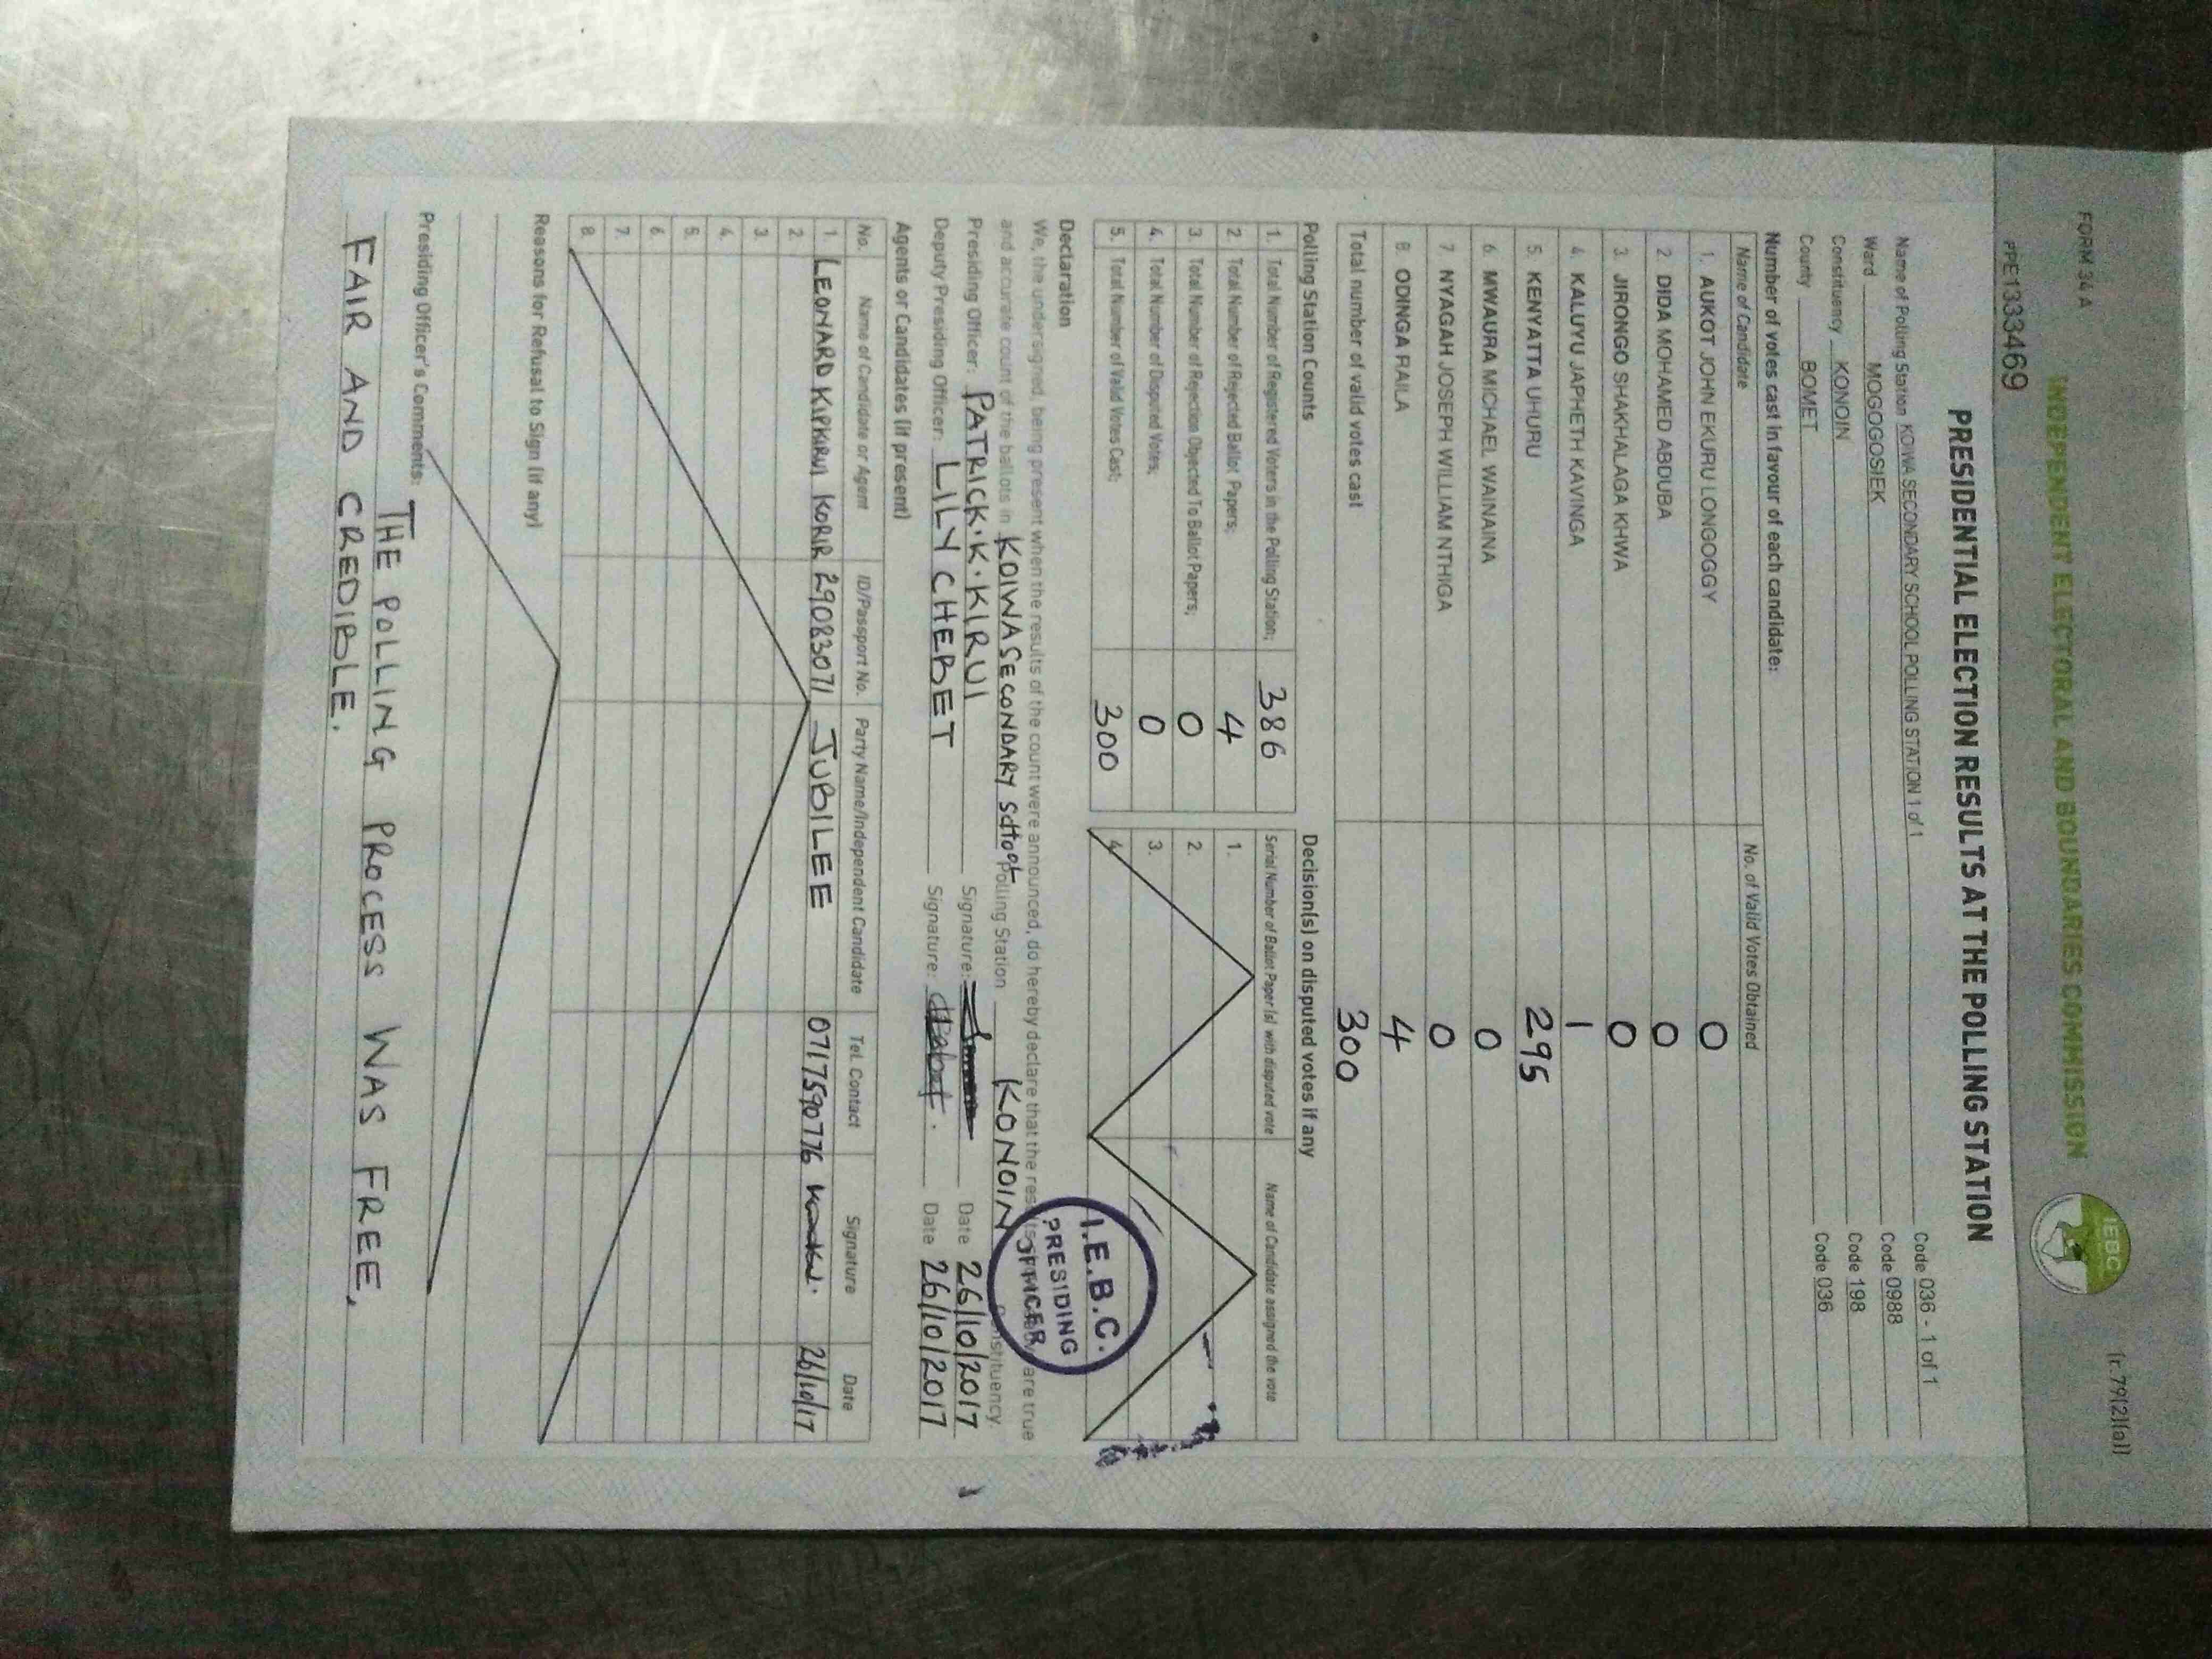 FORM 34 A
(r.79(2)(a))
INDEPENDENT ELECTORAL AND BOUNDARIES COMMISSION
IEBC
PPE1333469
PRESIDENTIAL ELECTION RESULTS AT THE POLLING STATION
Name of Polling Station KOIWA SECONDARY SCHOOL POLLING STATION 1 of 1 Code 036 - 1 of 1
Ward MOGOGOSIEK Code 0988
Constituency KONOIN Code 198
County BOMET Code 036
Number of votes cast in favour of each candidate:
Name of Candidate No. of Valid Votes Obtained
1. AUKOT JOHN EKURU LONGOGGY 0
2 DIDA MOHAMED ABDUBA 0
3. JIRONGO SHAKHALAGA KHWA 0
4. KALUYU JAPHETH KAVINGA 1
5. KENYATTA UHURU 295
6. MWAURA MICHAEL WAINAINA 0
7. NYAGAH JOSEPH WILLIAM NTHIGA 0
8. ODINGA RAILA 4
Total number of valid votes cast 300
Polling Station Counts
1. Total Number of Registered Voters in the Polling Station; 386
2. Total Number of Rejected Ballot Papers; 4
3. Total Number of Rejection Objected To Ballot Papers; 0
4. Total Number of Disputed Votes; 0
5. Total Number of Valid Votes Cast; 300
Decision(s) on disputed votes if any
Serial Number of Ballot Paper (s) with disputed vote Name of Candidate assigned the vote
1.
2.
3.
4.
Declaration
We, the undersigned, being present when the results of the count were announced, do hereby declare that the are true
and accurate count of the ballots in KOIWA SECONDARY SCHOOL Polling Station KONOIN Constituency.
I.E.B.C.
PRESIDING
OFFICER
Presiding Officer: PATRICK.K.KIRUI Signature: Date 26/10/2017
Deputy Presiding Officer: LILY CHEBET Signature: Date 26/10/2017
Agents or Candidates (if present)
No. Name of Candidate or Agent ID/Passport No. Party Name/Independent Candidate Tel. Contact Signature Date
1. LEONARD KIPKIRUI KORIR 29083071 JUBILEE 0717590776 26/10/17
2.
3.
4.
5.
6.
7.
8.
Reasons for Refusal to Sign (if any)
Presiding Officer's Comments: THE POLLING PROCESS WAS FREE,
FAIR AND CREDIBLE.